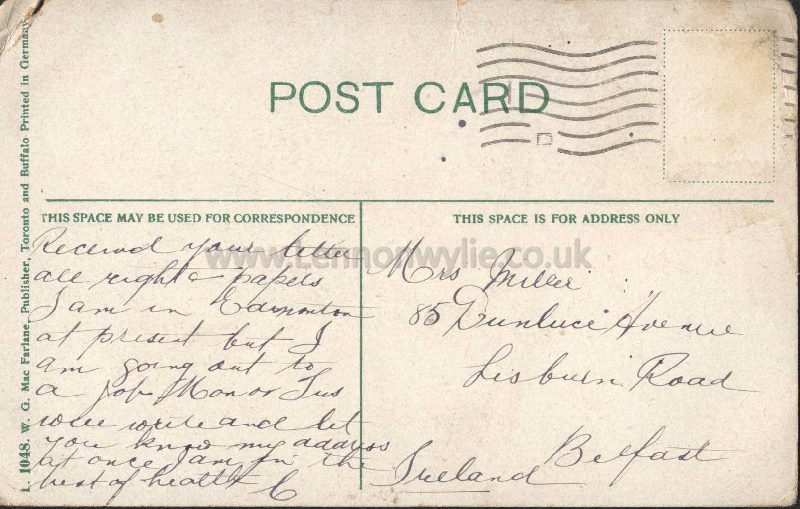 POST CARD
THIS SPACE MAY BE USED FOR CORRESPONDENCE
THIS SPACE IS FOR ADDRESS ONLY
L. 1048. W. G. Mac Farlane, Publisher, Toronto and Buffalo Printed in Germany.
www.Lennonwylie.co.uk
Received your letter
all right & papers
I am in Edmonton
at present but I
am going out to
a job Mon or Tus
will write and let
you know my address
at once I am in the
best of health C
Mrs Miller
85 Dunluce Avenue
Lisburn Road
Belfast
Ireland